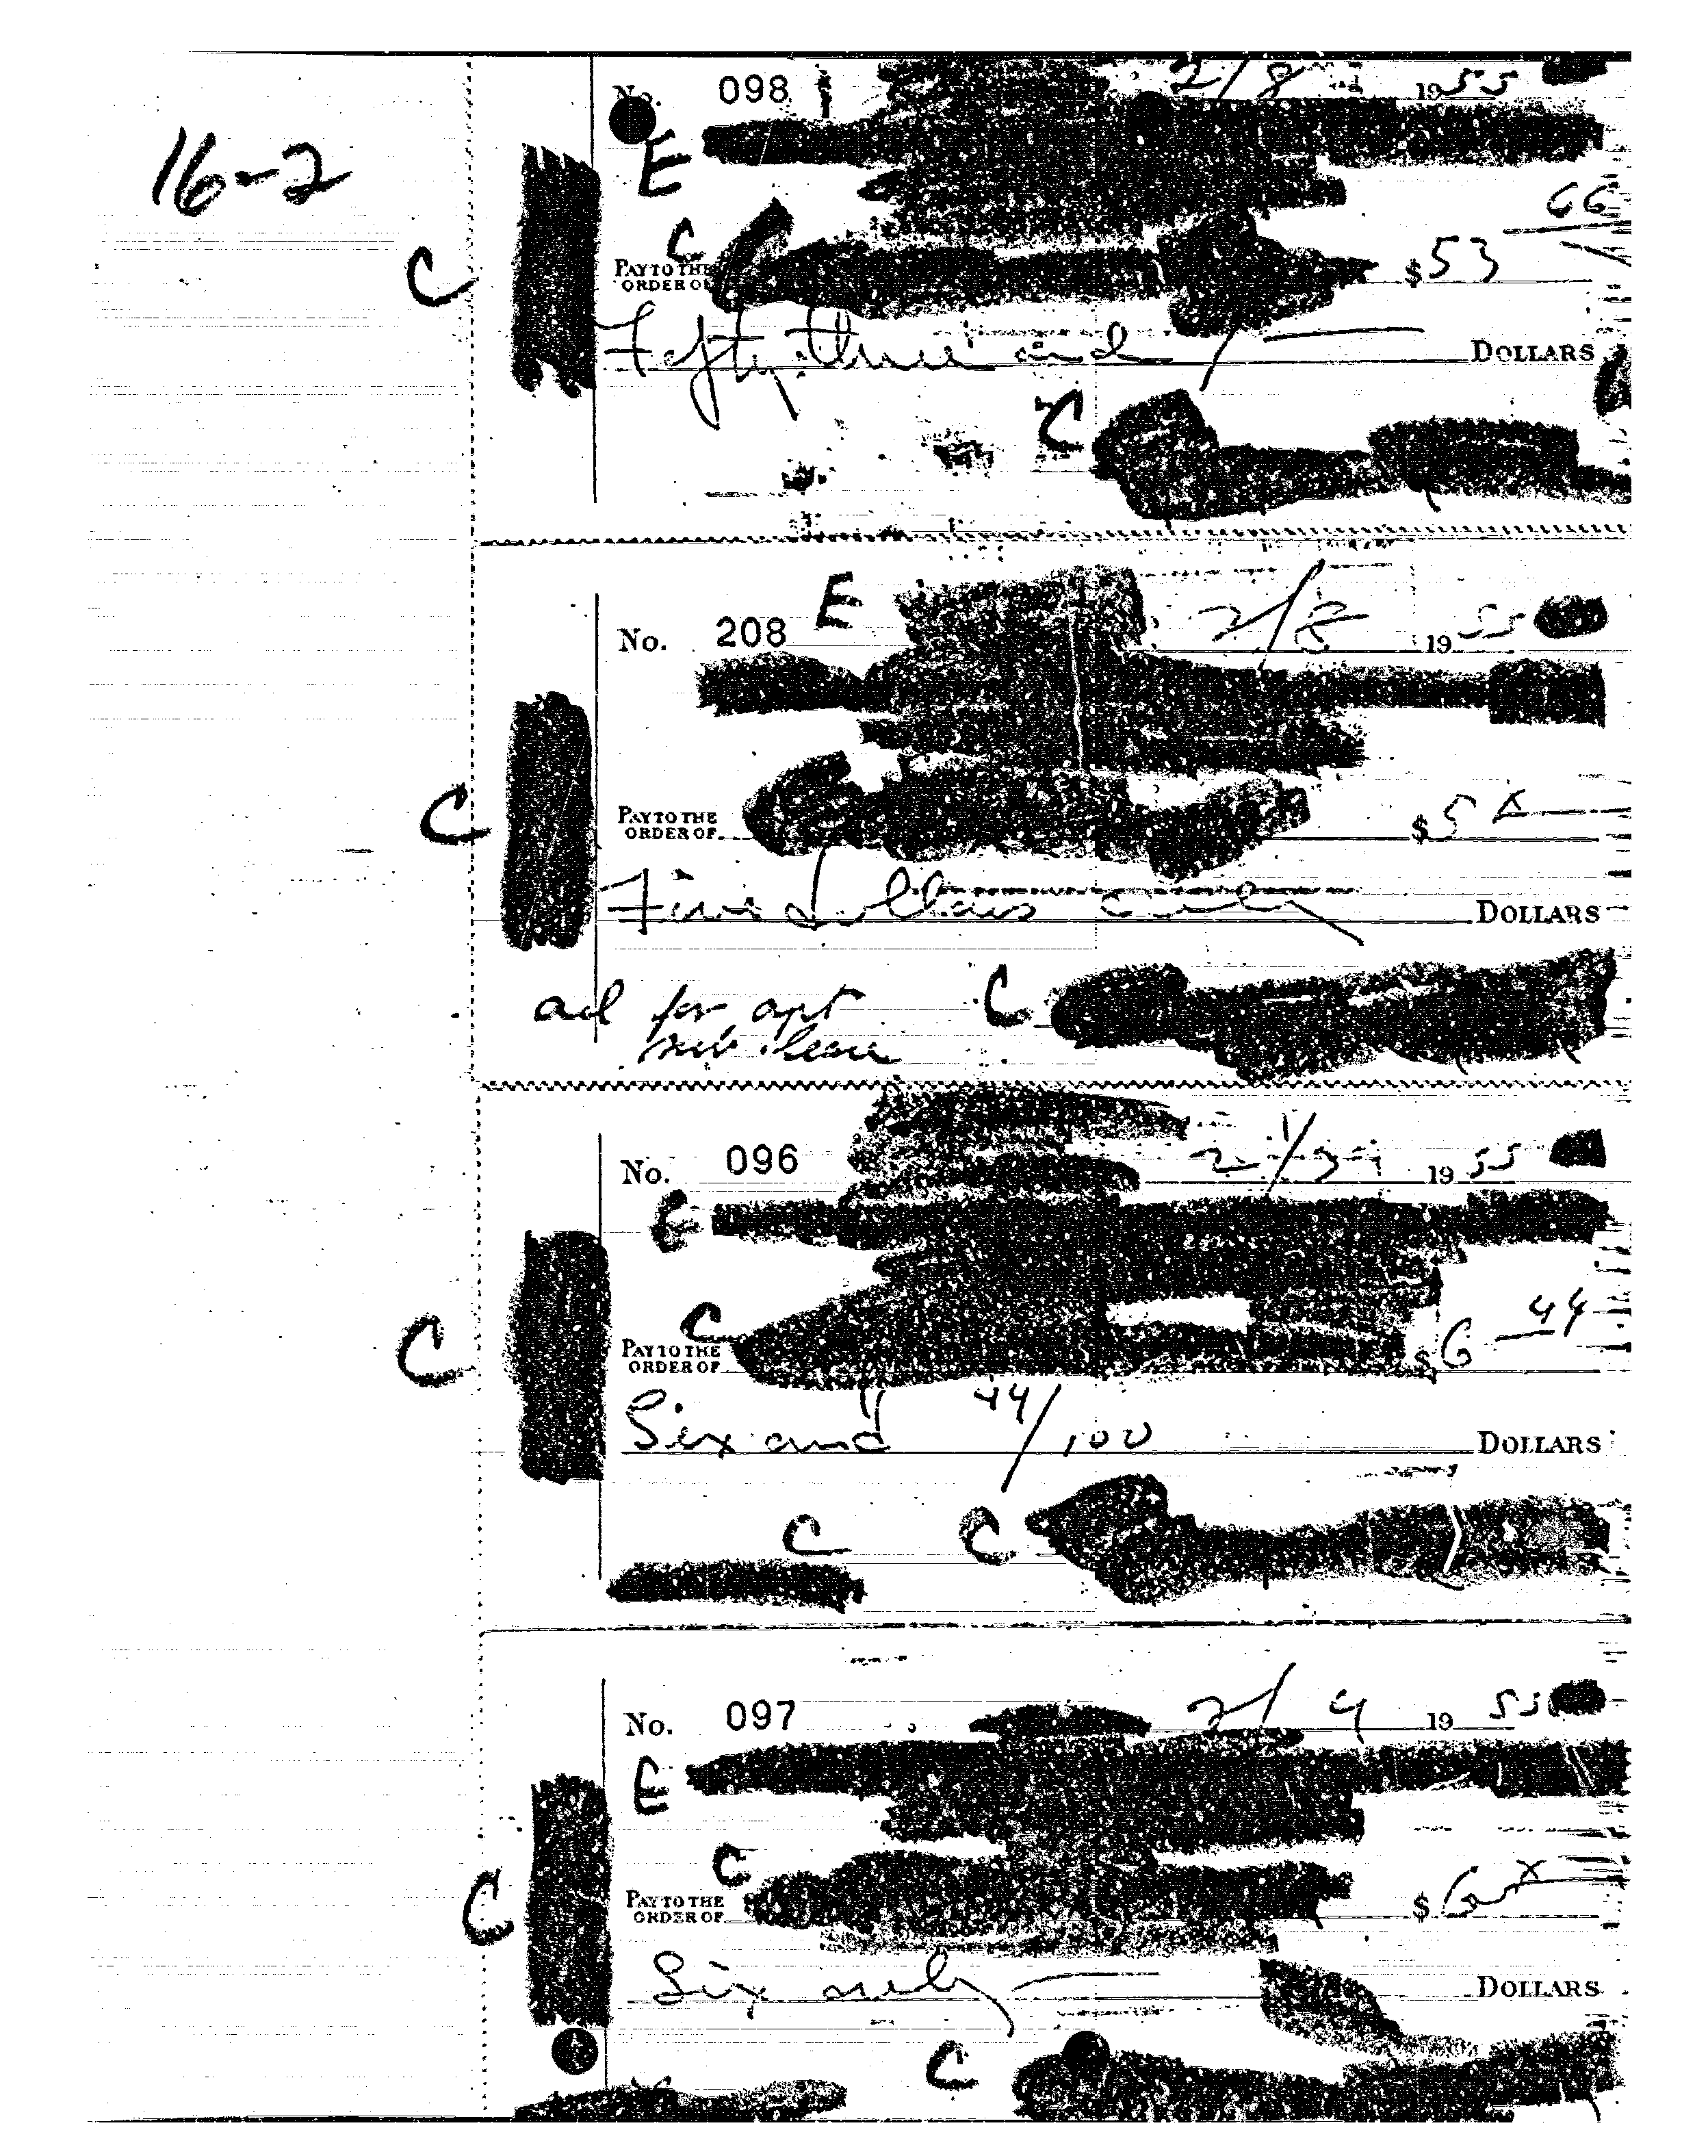 16-2
No. 098 2/8 1955
E
66
C
C PAY TO THE ORDER OF $53
Fifty three and DOLLARS
C
E
No. 208 2/8 1955
C
PAY TO THE ORDER OF $5 x
Five dollars only DOLLARS
ad for apt
C
sub lease
No. 096 2/3 1955
E
C
44
C PAY TO THE ORDER OF $6
Six and 44/100 DOLLARS
C C
No. 097 2/4 1955
E
C
C PAY TO THE ORDER OF $6 x
Six only DOLLARS
C